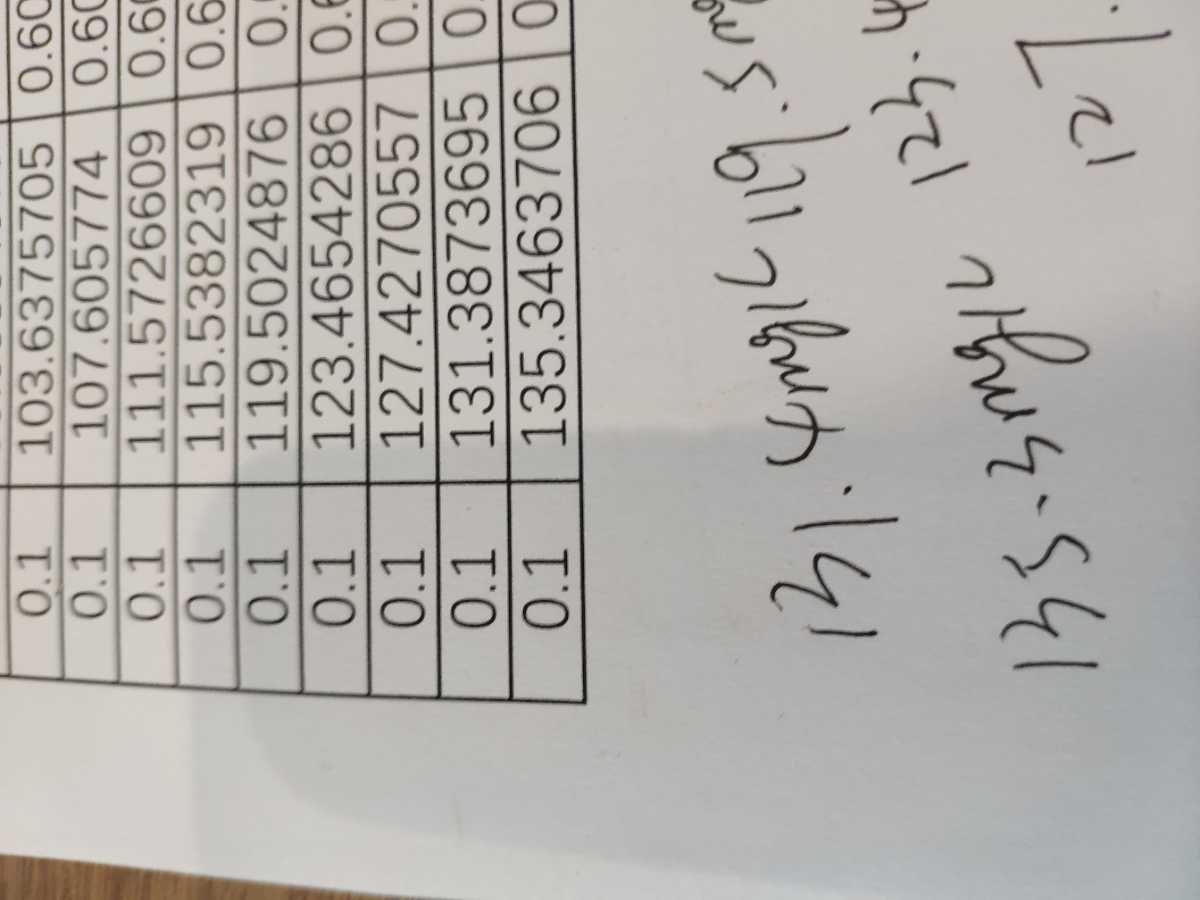 0.1 103.6375705 0.60
0.1 107.605774 0.60
0.1 111.5726609 0.60
0.1 115.5382319 0.6
0.1 119.5024876 0.
0.1 123.4654286 0.6
0.1 127.4270557 0.
0.1 131.3873695 0.
0.1 135.3463706 0
131.4mg/L 119.5 mg
135.3mg/L 123.4
127.